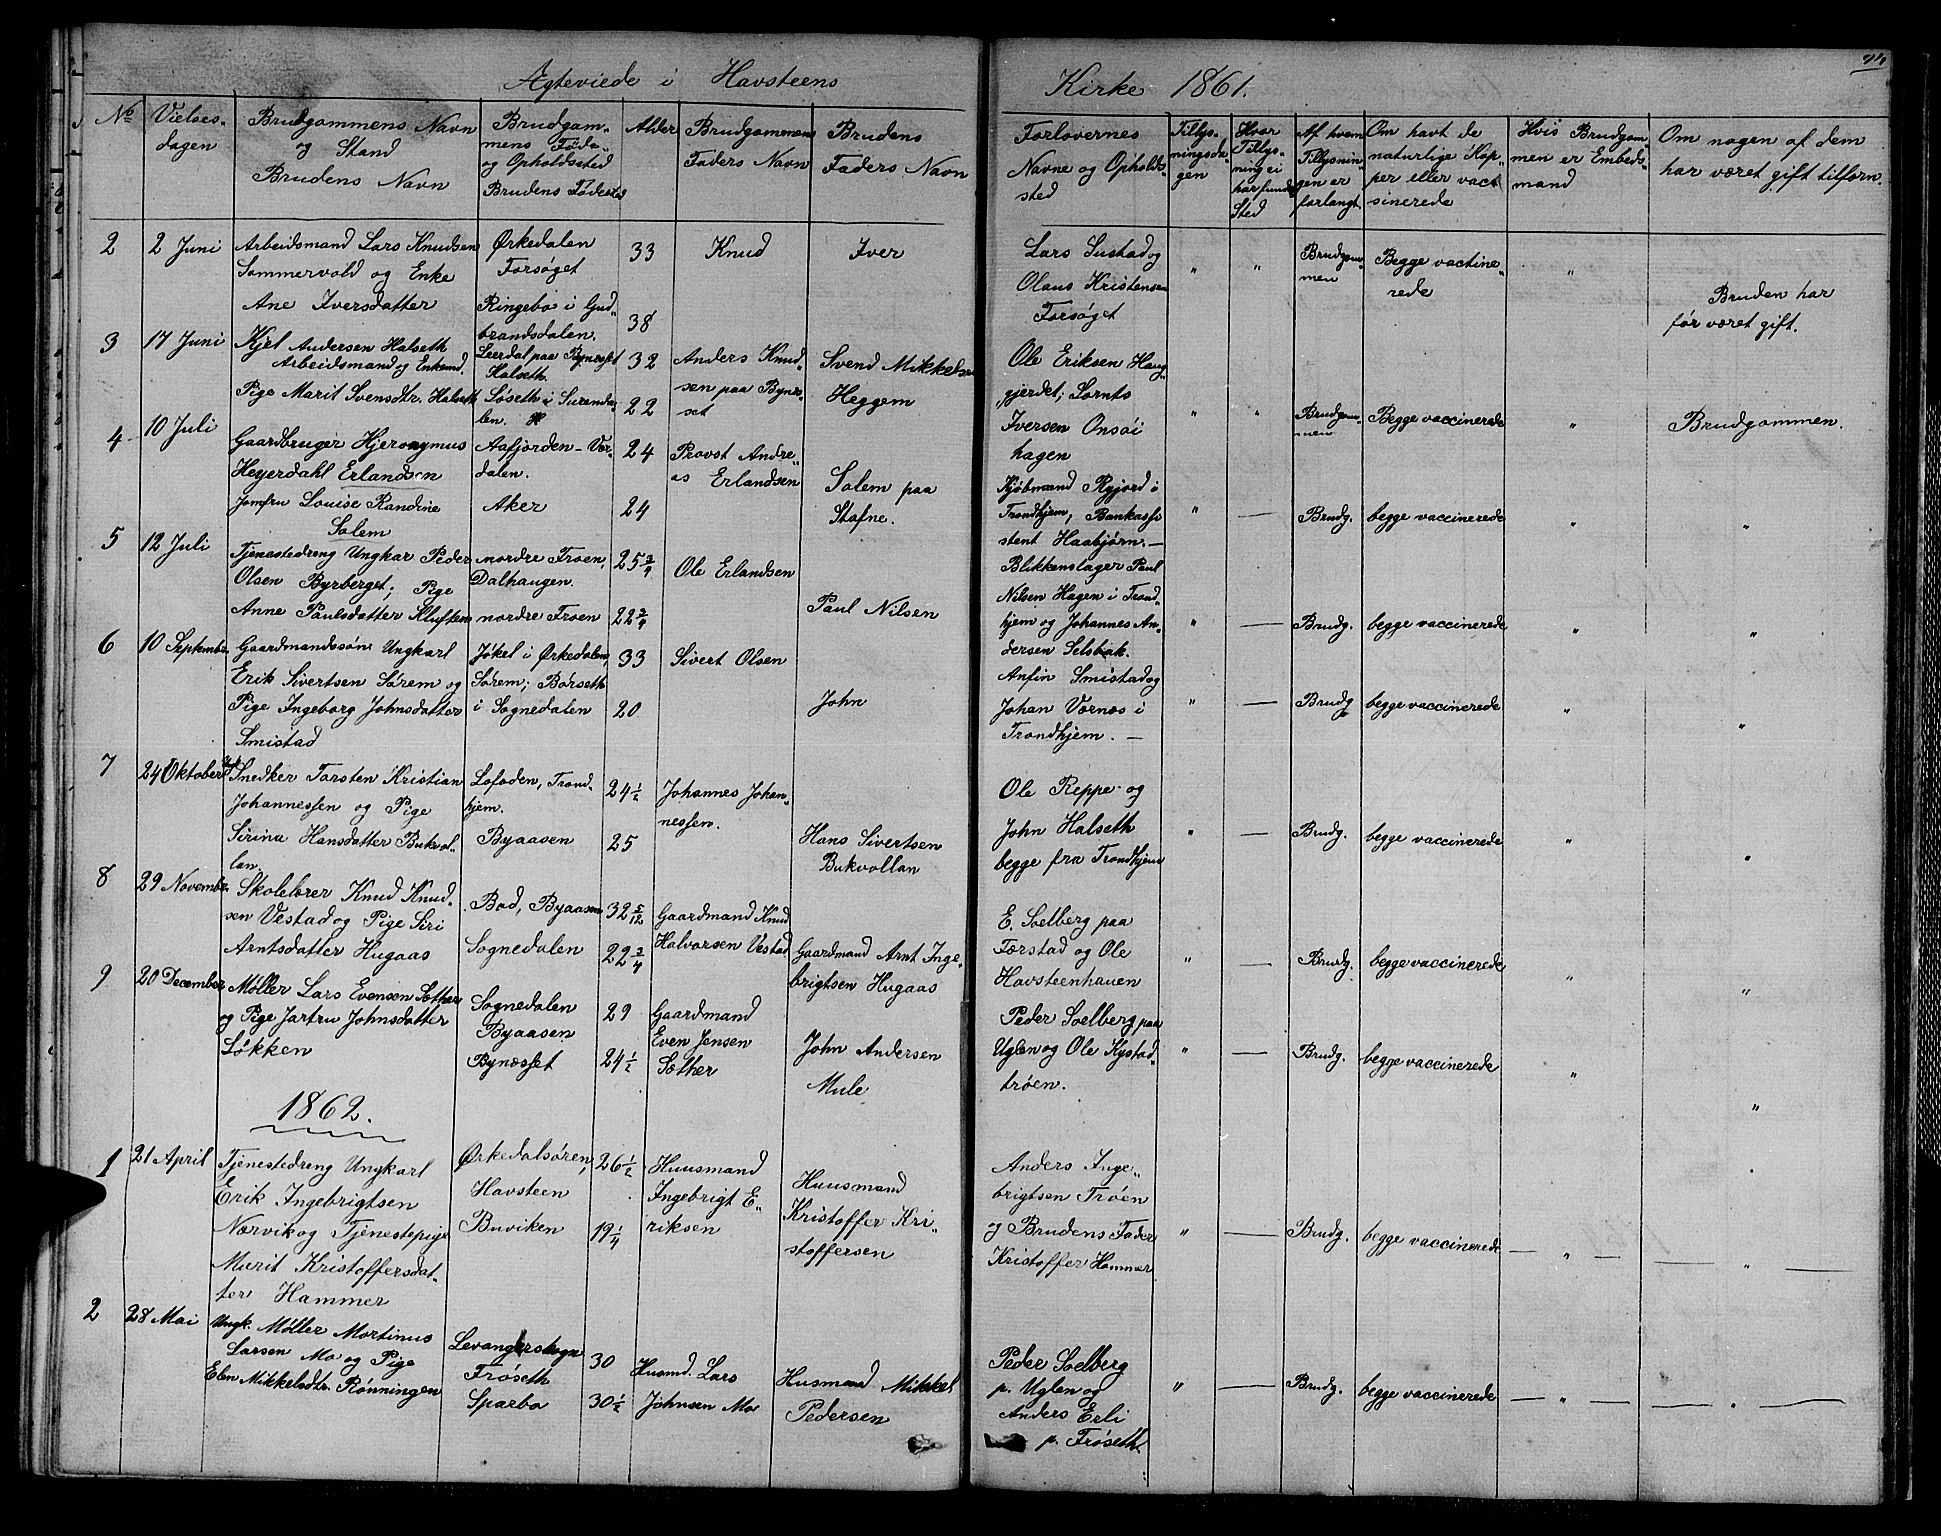 Ægteviede i Havsteens Kirke 1861.
No
Vielses-
dagen
Brudgommens Navn
og Stand
Brudens Navn
Brudgom-
mens Føde-
og Opholdssted
Brudens Fødested
Alder
Brudgommens
Faders Navn
Brudens
Faders Navn
Forlovernes
Navne og Opholds-
sted
Tillys-
ningsda-
gen
Hvor
Tillys-
ning ei
har fundet
Sted
Af hvem
Tillysnin-
gen er
forlangt
Om havt de
naturlige Kop-
per eller vact-
sinerede
Hvis Brudgom-
men er Embeds-
mand
Om nogen af dem
har været gift tilforn.
2
2 Juni
Arbeidsmand Lars Knudsen
Sommervold og Enke
Ane Iversdatter
Ørkedalen
Forsøget
Ringebo i Gud-
brandsdalen.
33
38
Knud
Iver
Lars Sustad og
Olaus Kristensen
Forsøget
"
"
Brudgom-
men
Begge vactine-
rede
"
Bruden har
før været gift.
3
17 Juni
Kjel Andersen Halseth
Arbeidsmand og Enkemd.
Pige Marit Svensdtr. Halseth
Leerdal paa Bynesset
Halseth.
Løseth i Surenda-
len.
32
22
Anders Knud-
sen paa Bynes-
set
Svend Mikkelsen
Heggem
Ole Eriksen Haug-
gjerdet; Lornts
Iversen Onsöi
hagen
"
"
Brudgom-
men
Begge vaccinerede
"
Brudgommen.
4
10 Juli
Gaardbruger Hjeronymus
Heyerdahl Erlandsen
Jomfru Louise Randine
Salem
Aafjorden - Vær-
dalen.
Aker
24
24
Provst Andre-
as Erlandsen
Salem paa
Stafne.
Kjöbmænd Ryjord i
Trondhjem, Bankassi
stent Haabjørn. -
"
—
Brudg.
begge vaccinerede
"
"
5
12 Juli
Tjenestedreng Ungkar Peder
Olsen Byrberget; Pige
Anne Paulsdatter Kluften
nordre Froen,
Dalhaugen.
nordre Froen
25 3/4
22 3/4
Ole Erlandsen
Paul Nilsen
Blikkenslager Paul
Nilsen Hagen i Trond-
hjem og Johannes An-
dersen Selsbak.
"
—
Brudg.
begge vaccinerede
"
"
6
10 Septembr.
Gaardmandssøn Ungkarl
Erik Sivertsen Sørem og
Pige Ingeborg Johnsdatter
Smistad
Jøkel i Ørkedalen,
Sørem; Börseth
i Sognedalen
33
20
Sivert Olsen
John
Anfin Smistad og
Johan Værnes i
Trondhjem. —
"
—
Brudg
begge vaccinerede
"
"
7
24 Oktober
Snedker Torsten Kristian
Johannessen og Pige
Sirina Hansdatter Bukvol-
lan.
Lofoden, Trond-
hjem.
Byaasen
24 1/2
25
Johannes Johan-
nessen.
Hans Sivertsen
Bukvollan
Ole Reppe og
John Halseth
begge fra Trondhjem
"
—
Brudg.
begge vaccinerede
"
"
8
29 Novembr.
Skolelærer Knud Knud-
sen Vestad og Pige Siri
Arntsdatter Hugaas
Bod, Byaasen
Sognedalen
32 5/12
22 3/4
Gaardmand Knud
Halvorsen Vestad
Gaardmand Arnt Inge-
brigtsen Hugaas
E. Soelberg paa
Færstad og Ole
Havsteenhauen
"
—
Brudg.
begge vaccinerede
"
"
9
20 December
Møller Lars Evensen Sæther
og Pige Jartru Johnsdatter
Løkken
Sognedalen
Byaasen
Bynæsset
29
24 1/2
Gaardmand
Even Jensen
Sæther
John Andersen
Mule
Peder Soelberg paa
Uglen og Ole Kystad-
trøen.
"
—
Brudg.
begge vaccinerede
"
"
1862.
1
21 April
Tjenestedreng Ungkarl
Erik Ingebrigtsen
Norvik og Tjenestepige
Marit Kristoffersdat-
ter Hammer
Ørkedalsøren,
Havsteen
Buviken
26 1/2
19 1/4
Huusmand
Ingebrigt E-
riksen
Huusmand
Kristoffer Kri-
stoffersen
Anders Inge-
brigtsen Trøen
og Brudens Fader
Kristoffer Hammer
"
—
Brudg.
begge vaccinerede
— " —
— " —
2
28 Mai
Ungk. Møller Mortinus
Larsen Mo og Pige
Elen Mikkelsdtr. Rønningen
Levangerskogn
Frøseth
Sparbo
30
30 1/2
Husmd. Lars
Johnsen Mo
Husmand Mikkel
Pedersen
Peder Soelberg
p. Uglen og
Anders Erli
p. Frøseth.
"
—
Brudg.
begge vaccinerede
— " —
— " —